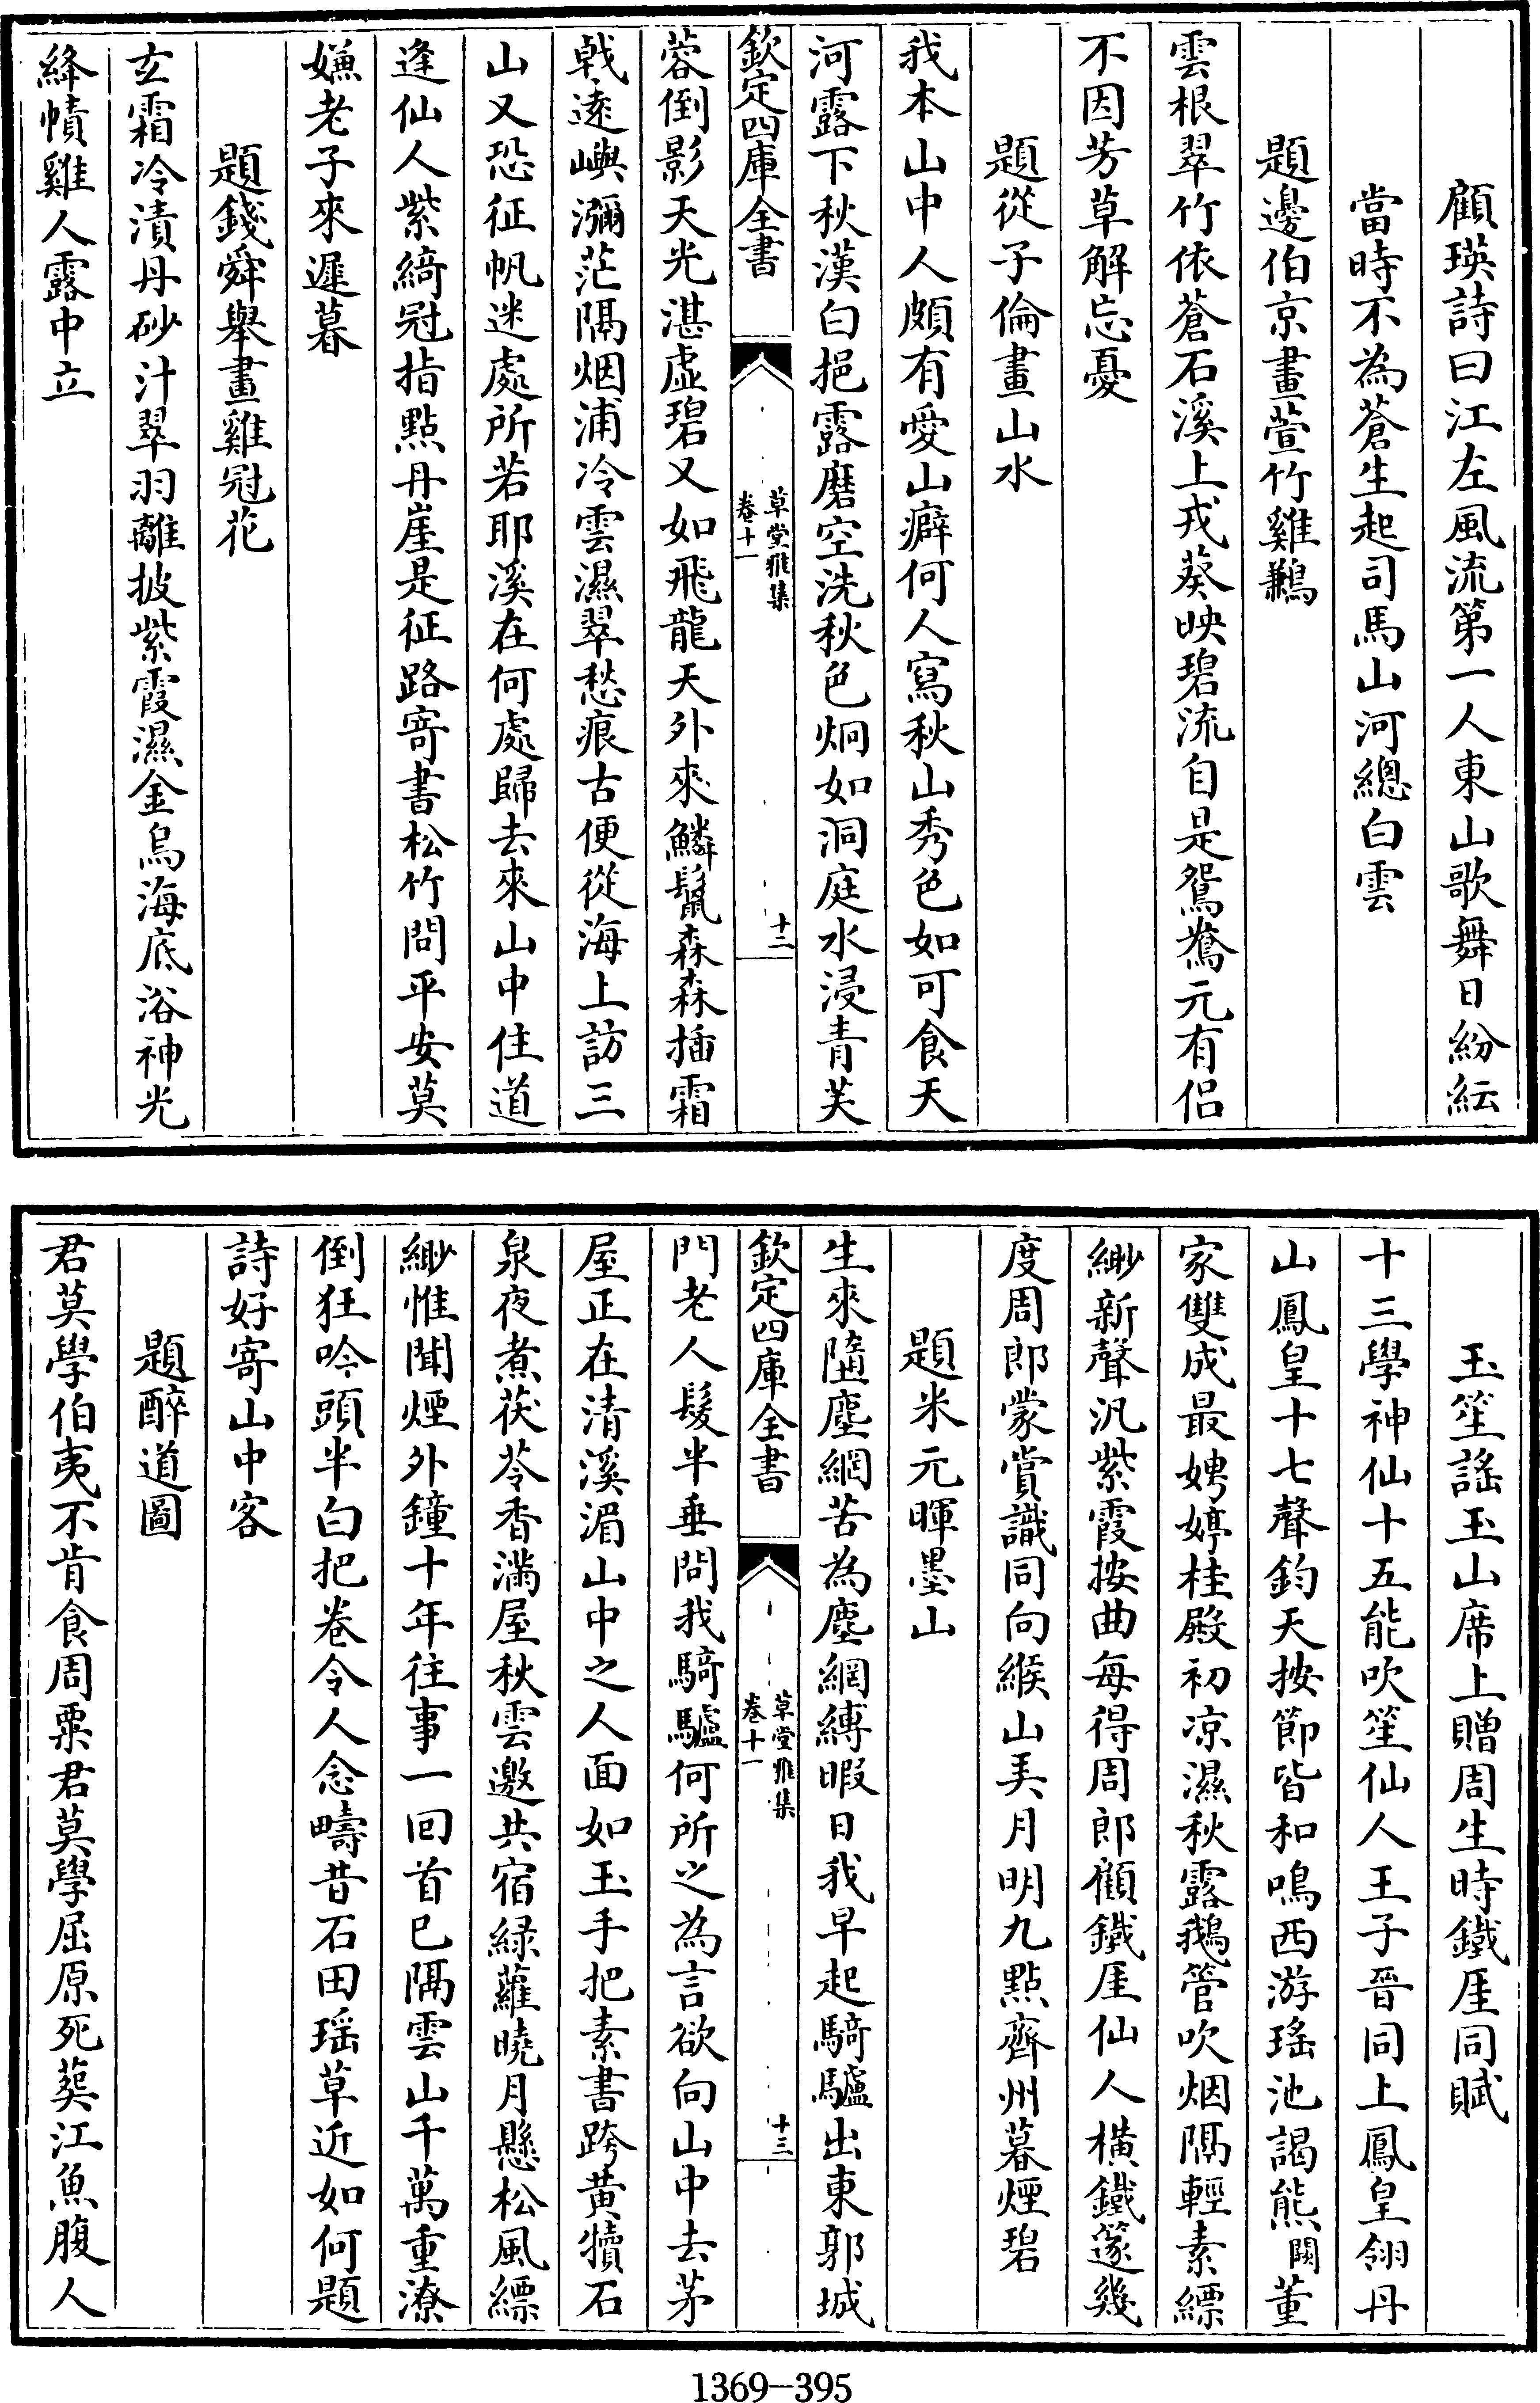 顧瑛詩曰江左風流第一人東山歌舞日紛紜
當時不為蒼生起司馬山河總白雲
題邊伯京畫萱竹雞鶼
雲根翠竹依蒼石溪上戎葵映碧流自是鴛鴦元有侣
不因芳草解忘憂
題從子倫畫山水
我本山中人頗有愛山癖何人寫秋山秀色如可食天
河露下秋漢白挹露磨空洗秋色炯如洞庭水浸青芙
欽定四庫全書
草堂雅集
卷十一
十二
蓉倒影天光湛虛碧又如飛龍天外來鱗鬛森森插霜
戟遠嶼瀰茫隔烟浦冷雲濕翠愁痕古便從海上訪三
山又恐征帆迷處所若耶溪在何處歸去來山中住道
逢仙人紫綺冠指點丹崖是征路寄書松竹問平安莫
嫌老子來遲暮
題錢舜舉畫雞冠花
玄霜冷漬丹砂汁翠羽離披紫霞濕金烏海底浴神光
絳幘雞人露中立
玉笙謠玉山席上贈周生時鐵厓同賦
十三學神仙十五能吹笙仙人王子晉同上鳳皇翎丹
山鳳皇十七聲鈞天按節皆和鳴西游瑤池謁熊闕董
家雙成最娉婷桂殿初凉濕秋露鵝管吹烟隔輕素縹
緲新聲汎紫霞按曲每得周郎顧鐵厓仙人橫鐵篴幾
度周郎蒙賞識同向緱山美月明九點齊州暮煙碧
題米元暉墨山
生來墮塵網苦為塵網縳暇日我早起騎驢出東郭城
欽定四庫全書
草堂雅集
卷十一
十三
門老人髮半垂問我騎驢何所之為言欲向山中去茅
屋正在清溪湄山中之人面如玉手把素書跨黄犢石
泉夜煮茯苓香滿屋秋雲邀共宿綠蘿曉月懸松風縹
緲惟聞煙外鐘十年往事一回首已隔雲山千萬重潦
倒狂吟頭半白把卷令人念疇昔石田瑶草近如何題
詩好寄山中客
題醉道圖
君莫學伯夷不肯食周粟君莫學屈原死葬江魚腹人
1369-395